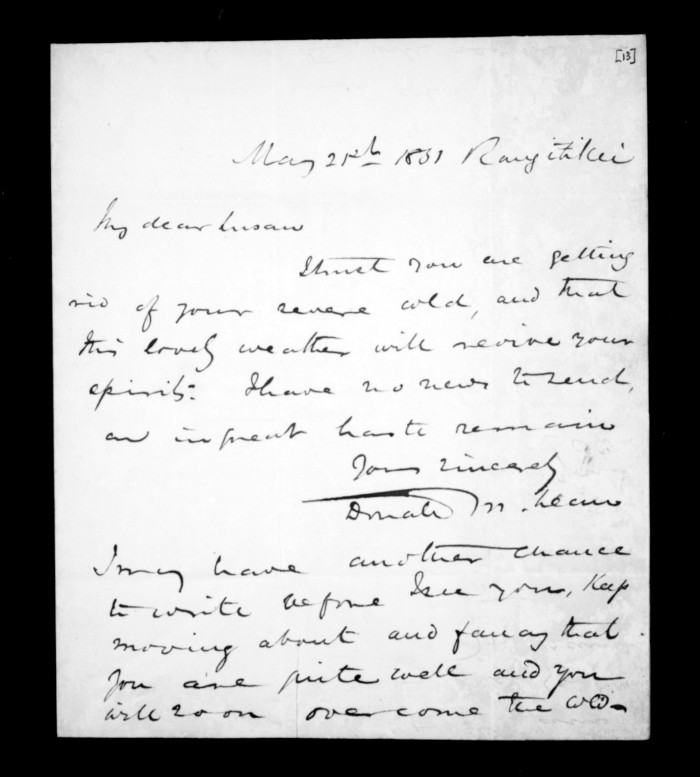 [13]
May 21st 1851 Rangitikei
My dear Susan
I trust you are getting
rid of your severe cold, and that
this lovely weather will revive your
spirits. I have no news to send,
am in great haste remain
Yours sincerely
Donald McLean
I may have another chance
to write before I see you, Keep
moving about and fancy that
you are quite well and you
will soon overcome the cold